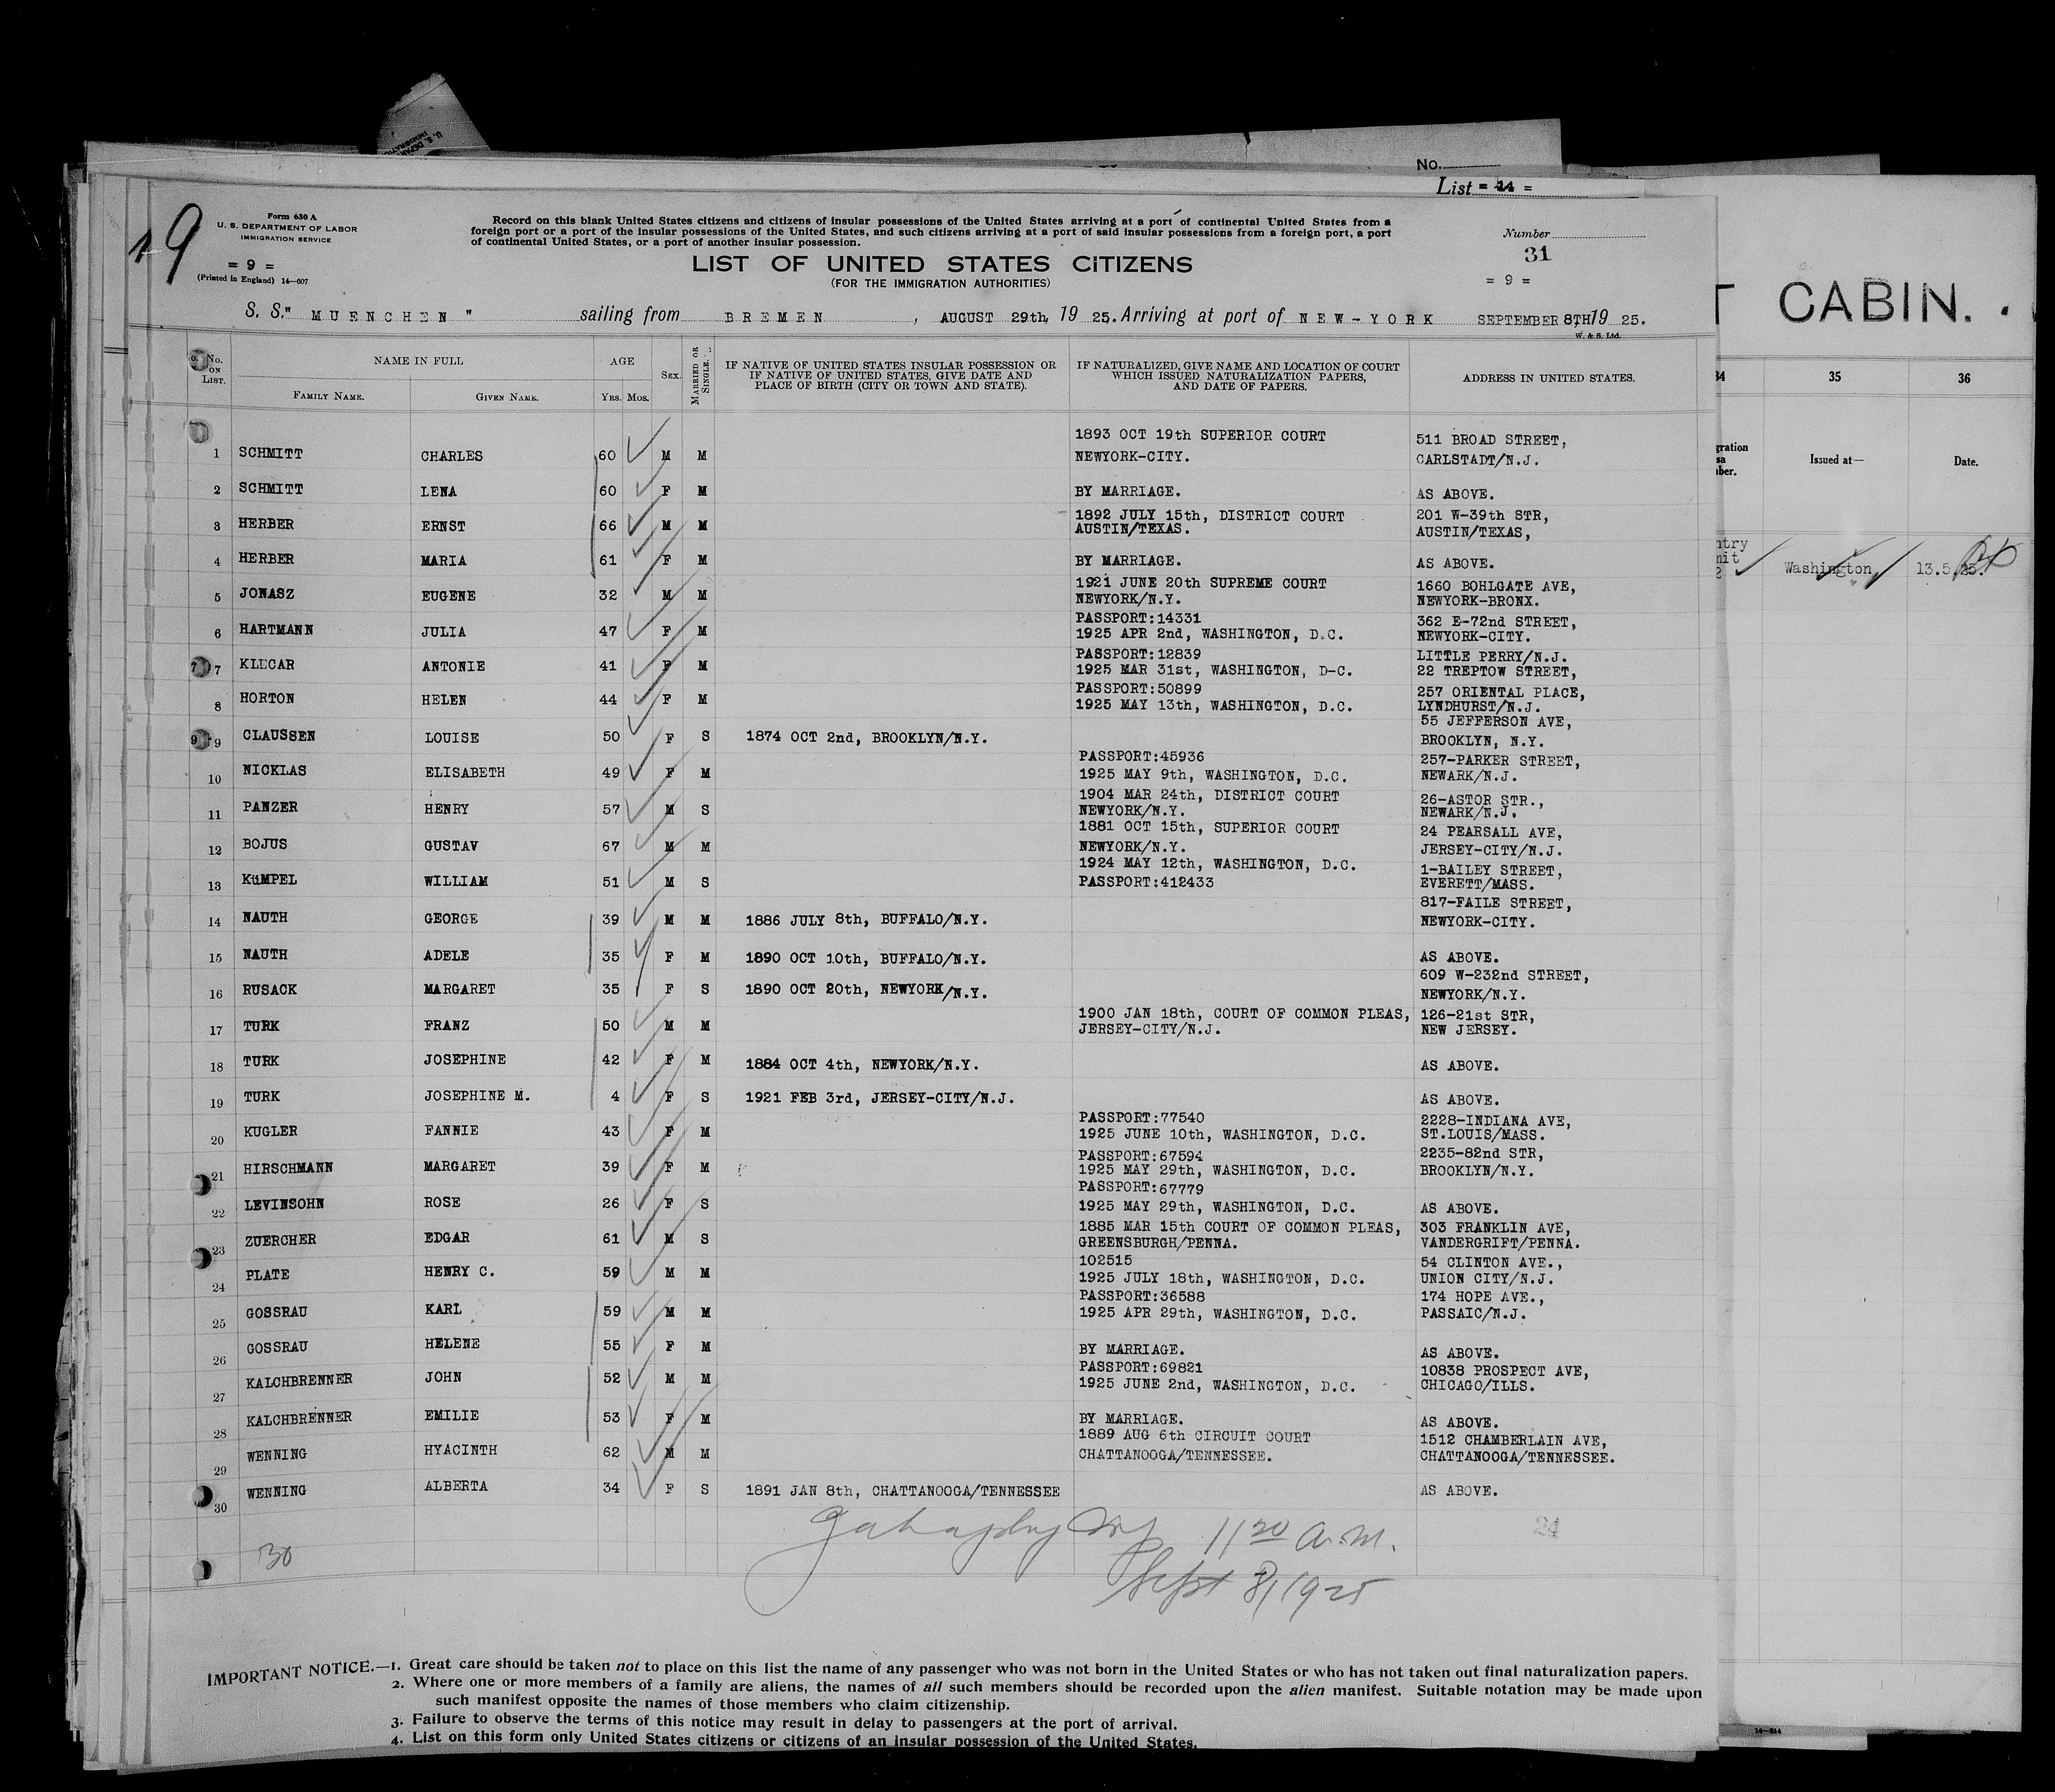 No.
List = 14 =
19
Form 630 A
U. S. DEPARTMENT OF LABOR
IMMIGRATION SERVICE
= 9 =
(Printed in England) 14—607
Record on this blank United States citizens and citizens of insular possessions of the United States arriving at a port of continental United States from a
foreign port or a port of the insular possessions of the United States, and such citizens arriving at a port of said insular possessions from a foreign port, a port
of continental United States, or a port of another insular possession.
LIST OF UNITED STATES CITIZENS
(FOR THE IMMIGRATION AUTHORITIES)
Number
31
= 9 =
S. S. " MUENCHEN " sailing from BREMEN, AUGUST 29th, 19 25. Arriving at port of NEW-YORK SEPTEMBER 8TH, 19 25.
W. & S. Ltd.
No. ON LIST. NAME IN FULL AGE SEX. MARRIED OR SINGLE. IF NATIVE OF UNITED STATES INSULAR POSSESSION OR IF NATIVE OF UNITED STATES, GIVE DATE AND PLACE OF BIRTH (CITY OR TOWN AND STATE). IF NATURALIZED, GIVE NAME AND LOCATION OF COURT WHICH ISSUED NATURALIZATION PAPERS, AND DATE OF PAPERS. ADDRESS IN UNITED STATES.
FAMILY NAME. GIVEN NAME. YRS. MOS.
1893 OCT 19th SUPERIOR COURT 511 BROAD STREET,
1 SCHMITT CHARLES 60 M M NEWYORK-CITY. CARLSTADT/N.J.
2 SCHMITT LENA 60 F M BY MARRIAGE. AS ABOVE.
3 HERBER ERNST 66 M M 1892 JULY 15th, DISTRICT COURT 201 W-39th STR,
AUSTIN/TEXAS. AUSTIN/TEXAS,
4 HERBER MARIA 61 F M BY MARRIAGE. AS ABOVE.
5 JONASZ EUGENE 32 M M 1921 JUNE 20th SUPREME COURT 1660 BOHLGATE AVE,
NEWYORK/N.Y. NEWYORK-BRONX.
PASSPORT:14331 362 E-72nd STREET,
6 HARTMANN JULIA 47 F M 1925 APR 2nd, WASHINGTON, D.C. NEWYORK-CITY.
PASSPORT:12839 LITTLE PERRY/N.J.
7 KLECAR ANTONIE 41 F M 1925 MAR 31st, WASHINGTON, D-C. 22 TREPTOW STREET,
PASSPORT:50899 257 ORIENTAL PLACE,
8 HORTON HELEN 44 F M 1925 MAY 13th, WASHINGTON, D.C. LYNDHURST/N.J.
55 JEFFERSON AVE,
9 CLAUSSEN LOUISE 50 F S 1874 OCT 2nd, BROOKLYN/N.Y. BROOKLYN, N.Y.
PASSPORT:45936 257-PARKER STREET,
10 NICKLAS ELISABETH 49 F M 1925 MAY 9th, WASHINGTON, D.C. NEWARK/N.J.
1904 MAR 24th, DISTRICT COURT 26-ASTOR STR.,
11 PANZER HENRY 57 M S NEWYORK/N.Y. NEWARK/N.J.
1881 OCT 15th, SUPERIOR COURT 24 PEARSALL AVE,
12 BOJUS GUSTAV 67 M M NEWYORK/N.Y. JERSEY-CITY/N.J.
1924 MAY 12th, WASHINGTON, D.C. 1-BAILEY STREET,
13 KüMPEL WILLIAM 51 M S PASSPORT:412433 EVERETT/MASS.
817-FAILE STREET,
14 NAUTH GEORGE 39 M M 1886 JULY 8th, BUFFALO/N.Y. NEWYORK-CITY.
15 NAUTH ADELE 35 F M 1890 OCT 10th, BUFFALO/N.Y. AS ABOVE.
609 W-232nd STREET,
16 RUSACK MARGARET 35 F S 1890 OCT 20th, NEWYORK/N.Y. NEWYORK/N.Y.
17 TURK FRANZ 50 M M 1900 JAN 18th, COURT OF COMMON PLEAS, 126-21st STR,
JERSEY-CITY/N.J. NEW JERSEY.
18 TURK JOSEPHINE 42 F M 1884 OCT 4th, NEWYORK/N.Y. AS ABOVE.
19 TURK JOSEPHINE M. 4 F S 1921 FEB 3rd, JERSEY-CITY/N.J. AS ABOVE.
PASSPORT:77540 2228-INDIANA AVE,
20 KUGLER FANNIE 43 F M 1925 JUNE 10th, WASHINGTON, D.C. ST.LOUIS/MASS.
PASSPORT:67594 2235-82nd STR,
21 HIRSCHMANN MARGARET 39 F M 1925 MAY 29th, WASHINGTON, D.C. BROOKLYN/N.Y.
PASSPORT:67779
22 LEVINSOHN ROSE 26 F S 1925 MAY 29th, WASHINGTON, D.C. AS ABOVE.
1885 MAR 15th COURT OF COMMON PLEAS, 303 FRANKLIN AVE,
23 ZUERCHER EDGAR 61 M S GREENSBURGH/PENNA. VANDERGRIFT/PENNA.
102515 54 CLINTON AVE.,
24 PLATE HENRY C. 59 M M 1925 JULY 18th, WASHINGTON, D.C. UNION CITY/N.J.
PASSPORT:36588 174 HOPE AVE.,
25 GOSSRAU KARL 59 M M 1925 APR 29th, WASHINGTON, D.C. PASSAIC/N.J.
26 GOSSRAU HELENE 55 F M BY MARRIAGE. AS ABOVE.
PASSPORT:69821 10838 PROSPECT AVE,
27 KALCHBRENNER JOHN 52 M M 1925 JUNE 2nd, WASHINGTON, D.C. CHICAGO/ILLS.
28 KALCHBRENNER EMILIE 53 F M BY MARRIAGE. AS ABOVE.
1889 AUG 6th CIRCUIT COURT 1512 CHAMBERLAIN AVE,
29 WENNING HYACINTH 62 M M CHATTANOOGA/TENNESSEE. CHATTANOOGA/TENNESSEE.
30 WENNING ALBERTA 34 F S 1891 JAN 8th, CHATTANOOGA/TENNESSEE AS ABOVE.
11 20 a.m. 24
30
Sept 8/1925
IMPORTANT NOTICE.—1. Great care should be taken not to place on this list the name of any passenger who was not born in the United States or who has not taken out final naturalization papers.
2. Where one or more members of a family are aliens, the names of all such members should be recorded upon the alien manifest. Suitable notation may be made upon
such manifest opposite the names of those members who claim citizenship.
3. Failure to observe the terms of this notice may result in delay to passengers at the port of arrival.
4. List on this form only United States citizens or citizens of an insular possession of the United States.
T CABIN.
34 35 36
Issued at— Date.
Washington 13.5.25.